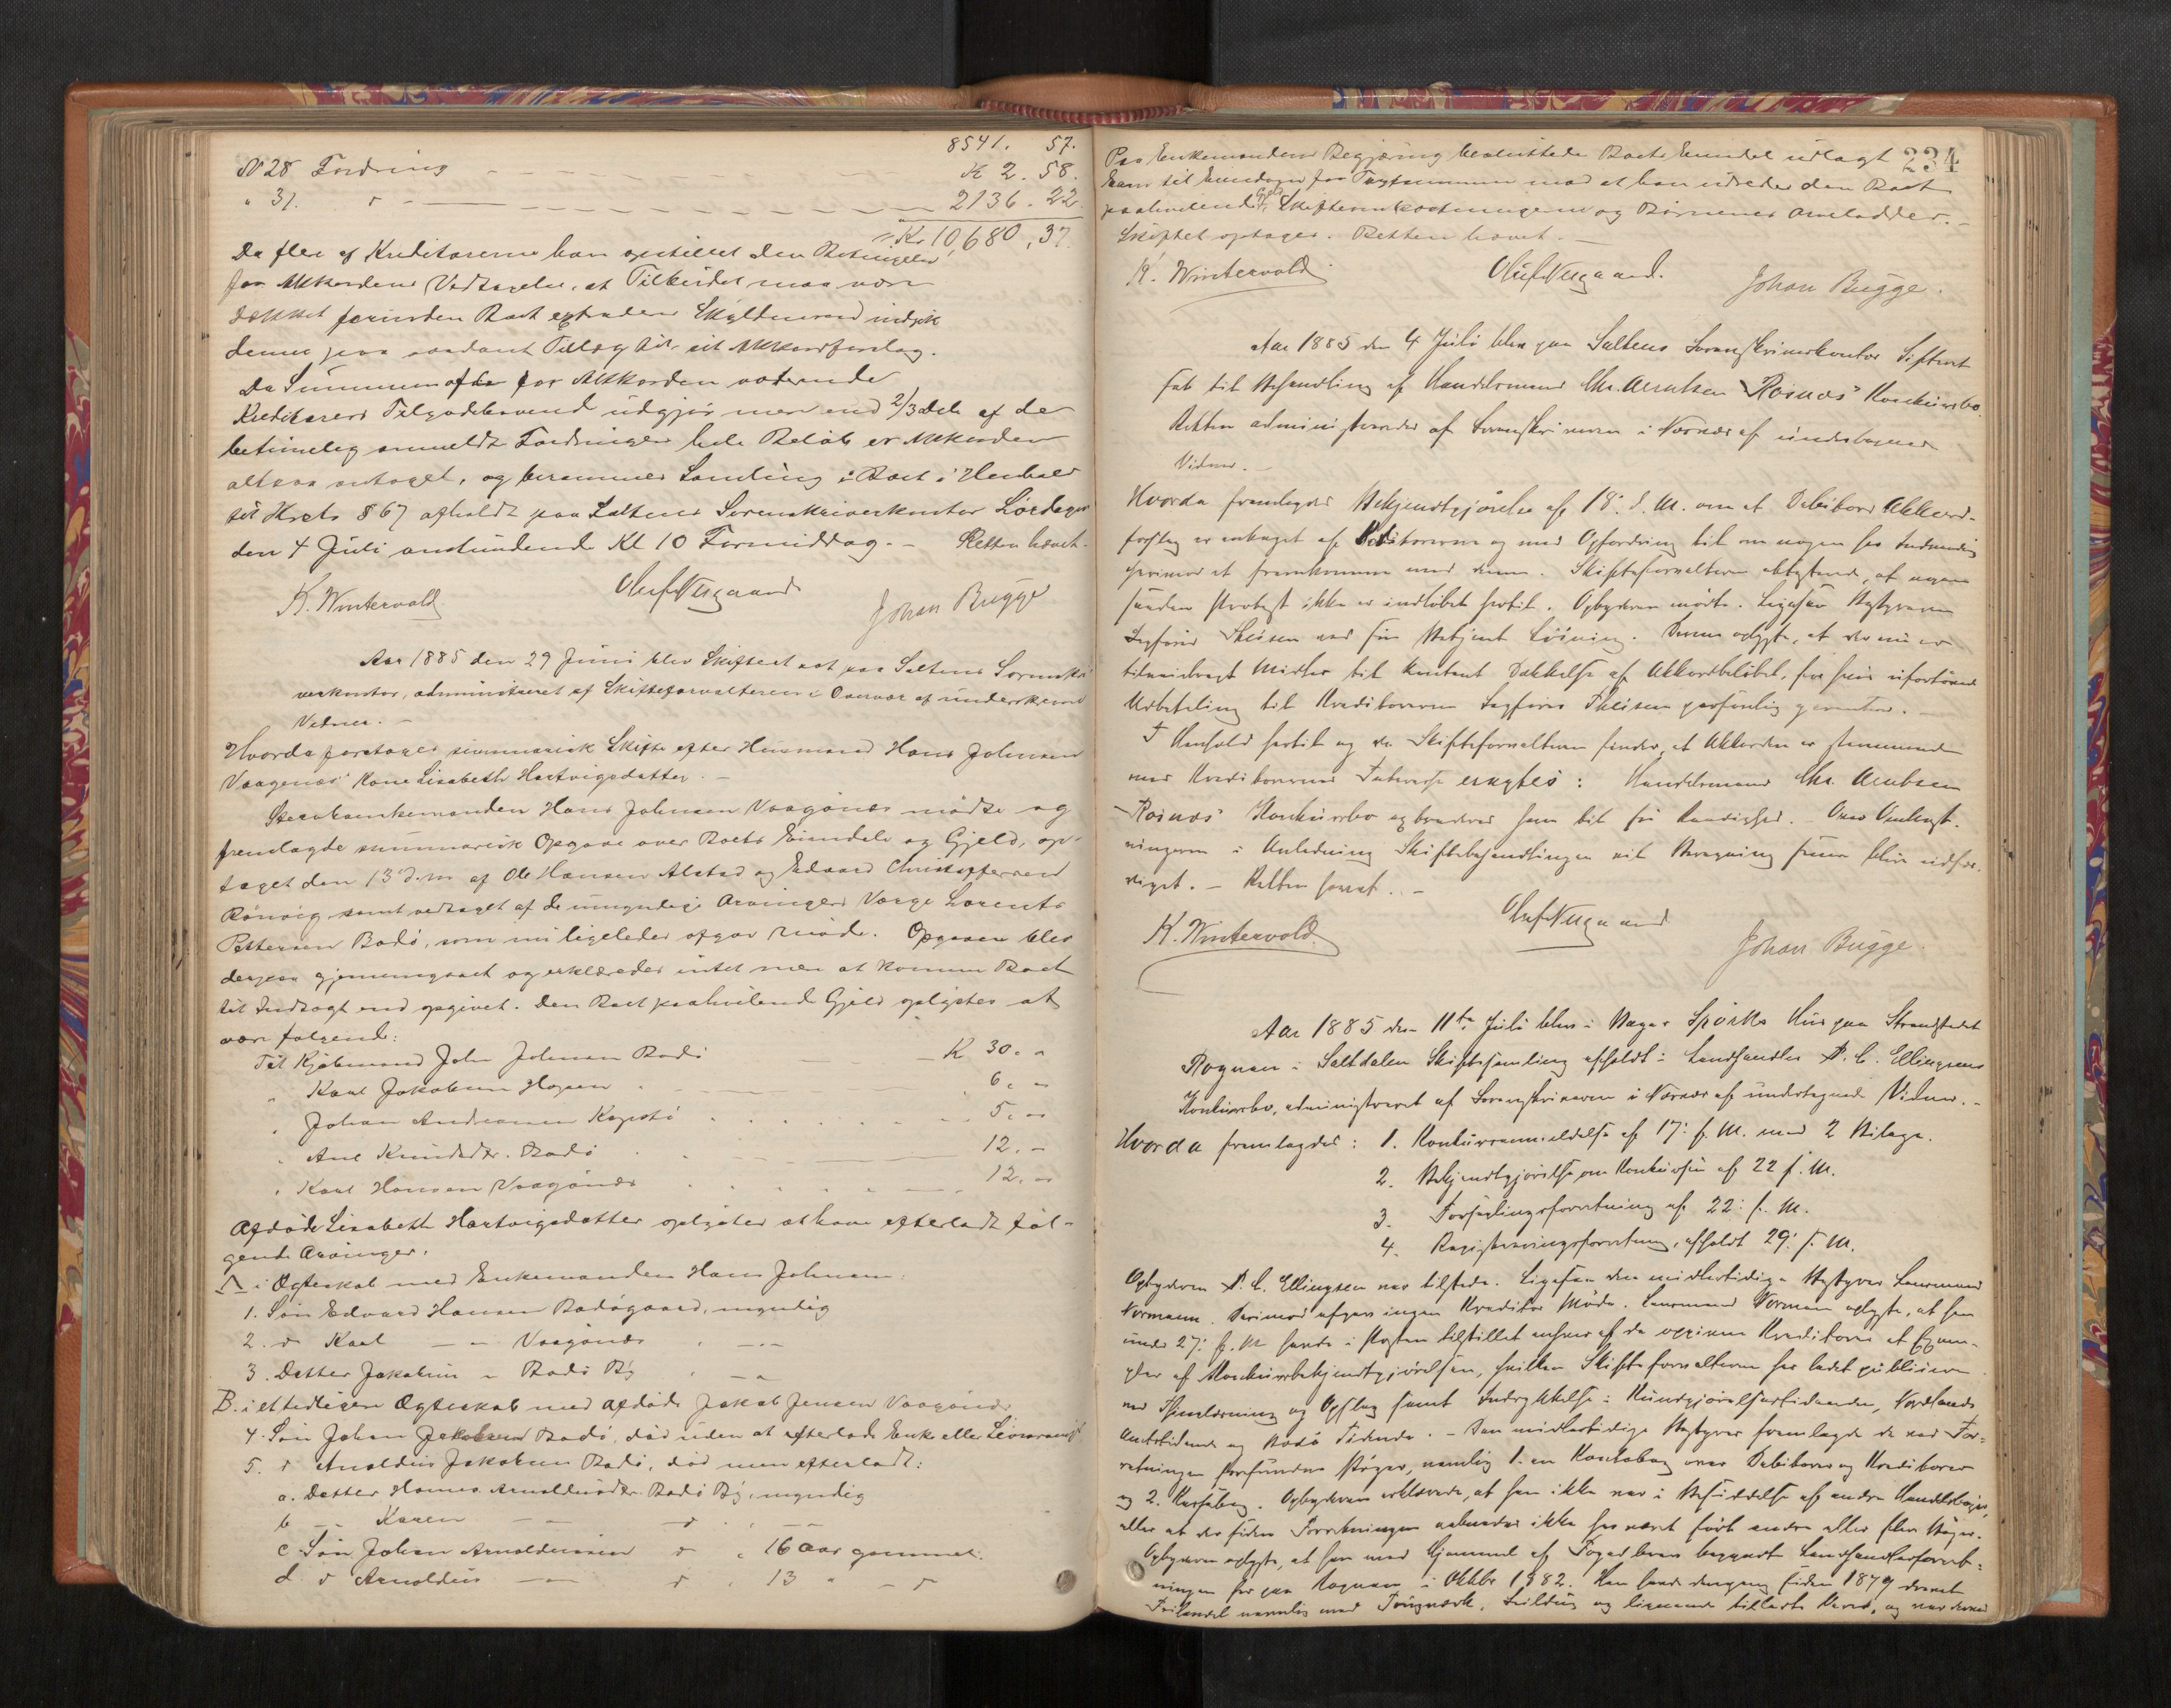 8541. 57.
N 28 Fordring K 2. 58.
" 31. " 2136. 22.
Kr. 10,680, 37.
Da flere af Kreditorerne har opstillet den Betingelse
for Akkordens Vedtagelse, at Tilbudet maa være
dækket forinden Boet extraderes Skyldneren indgik
denne paa saadant Tillæg til sit Akkordforslag.
Da Summen af de for Akkorden voterende
Kreditorers Tilgodehavende udgjør mere end 2/3 Dele af de
betimelig anmeldte Fordringers hele Beløb er Akkorden
altsaa antaget, og berammes Samling i Boet i Henhold
til Krets § 67 afholdt paa Saltens Sorenskriverkontor Lørdagen
den 4 Juli anstundende Kl 10 Formiddag. - Retten hævet.
K. Wintervold Oluf Nygaard Johan Bugge
Aar 1885 den 29 Juni blev Skifteret sat paa Saltens Sorenskri
verkontor, administreret af Skifteforvalteren i Overvær af underskrevne
Vidner. -
Hvorda foretages summarisk Skifte efter Husmand Hans Johnsen
Vaagønæs' Kone Lisabeth Hartvigsdatter. -
Sterboenkemanden Hans Johnsen Vaagønæs mødte og
fremlagde summarisk Opgave over Boets Eiendele og Gjeld, op-
taget den 13 d. m. af Ole Hansen Alstad og Edvard Christoffersen
Rønvig samt vedtaget af de umyndige Arvingers Værge Lorents
Pettersen Bodø, som nu ligeledes afgav Møde. Opgaven blev
derpaa gjennemgaaet og erklæredes intet mere at komme Boet
til Indtægt end opgivet. Den Boet paahvilende Gjeld oplystes at
være følgende:
Til Kjøbmand John Johnsen Bodø K 30. "
" Karl Jakobsen Hopen 6. "
" Johan Andreasen Kopstø 5. "
" Ane Knudsdtr. Bodø 12. -
" Karl Hansen Vaagønæs 12. "
Afdøde Lisabeth Hartvigsdatter oplystes at have efterladt føl-
gende Arvinger.
A i Ægteskab med Enkemanden Hans Johnsen:
1. Søn Edvard Hansen Bodøgaard, myndig
2. " Karl — " Vaagønæs " — " —
3. Datter Jakobine " Bodø By " — "
B. i et tidligere Ægteskab med afdøde Jakob Jensen Vaagønæs
4. Søn Johan Jakobsen Bodø, død uden at efterlade Enke eller Livsarving
5. " Arnoldus Jakobsen Bodø, død men efterladt:
a. Datter Hanna Arnoldusdtr. Bodø By, myndig
b — Karen — " —
c. Søn Johan Arnoldussen " " 16 Aar gammel.
d. " Arnoldus — " " 13 " — "
234
Paa Enkemandens Begjæring besluttede Boets Eiendele udlagt
ham til Eiendom for Taxtsummen mod at han udreder den Boet
paahvilende Gjeld, Skifteomkostningerne og Børnenes Arvelodder. -
Skiftet optages. Retten hævet. -
K. Wintervold. Oluf Nygaard. Johan Bugge.
Aar 1885 den 4 Juli blev paa Saltens Sorenskriverkontor Skifteret
sat til Behandling af Handelsmand Chr. Arntsen Rosnæs' Konkursbo.
Retten administreredes af Sorenskriveren i Nærvær af undertegnede
Vidner. -
Hvorda fremlagdes Bekjendtgjørelse af 18. d. M. om at Debitors Akkord-
forslag er antaget af Kreditorerne og med Opfordring til om nogen har Indvending
herimod at fremkomme med denne. Skifteforvalteren oplyste, at nogen
saadan Protest ikke er indløbet hertil. Opbyderen mødte. Ligesaa Bestyreren
Sagfører Theisen ved sin Betjent Löining. Denne oplyste, at der nu er
tilveiebragt Midler til kontant Dækkelse af Akkordbeløbet, for hvis ufortøvede
Udbetaling til Kreditorerne Sagfører Theisen personlig garanterer. -
I Henhold hertil og da Skifteforvalteren finder, at Akkorden er stemmende
med Kreditorernes Interesse eragtes: Handelsmand Chr. Arntsen
Rosnæs' Konkursbo extraderes ham til fri Raadighed. - Over Omkost-
ningerne i Anledning Skiftebehandlingen vil Beregning senere blive udfær-
diget. - Retten hævet. -
K. Wintervold. Oluf Nygaard Johan Bugge.
Aar 1885 den 11te Juli blev i Beger Spørks Hus paa Strandstedet
Rognan i Saltdalen Skiftesamling afholdt i Landhandler P. C. Ellingsens
Konkursbo, administreret af Sorenskriveren i Nærvær af undertegnede Vidner. -
Hvorda fremlagdes: 1. Konkursanmeldelse af 17. f. M. med 2 Bilage.
2. Bekjendtgjørelse om Konkursen af 22 f. M.
3. Forseglingsforretning af 22. f. M.
4. Registreringsforretning, afholdt 29. f. M.
Opbyderen P. C. Ellingsen var tilstede. Ligesaa den midlertidige Bestyrer Lensmand
Normann. Derimod afgav ingen Kreditor Møde. Lensmand Normann oplyste, at han
under 27. f. M havde i Posten tilstillet enhver af de opgivne Kreditorer et Exem-
plar af Konkursbekjendtgjørelsen, hvilken Skifteforvalteren har ladet publicere
ved Thinglæsning og Opslag samt Indrykkelse i Kundgjørelsestidende, Nordlands
Amtstidende og Bodø Tidende. - Den midlertidige Bestyrer fremlagde de ved For-
retningen forefundne Bøger, nemlig 1. en Kontobog over Debitorer og Kreditorer
og 2. Kassabog. Opbyderen erklærede, at han ikke var i Besiddelse af andre Handelsbøger,
eller at der siden Forretningen aabnedes ikke har været ført andre eller flere Bøger.
Opbyderen oplyste, at han med Hjemmel af Fogedbrev begyndte Landhandlerforret-
ningen her paa Rognan i Oktbr 1882. Han havde dengang siden 1879 drevet
Frihandel nemlig med Tougværk, Seildug og lignende tilladte Varer, og var derved